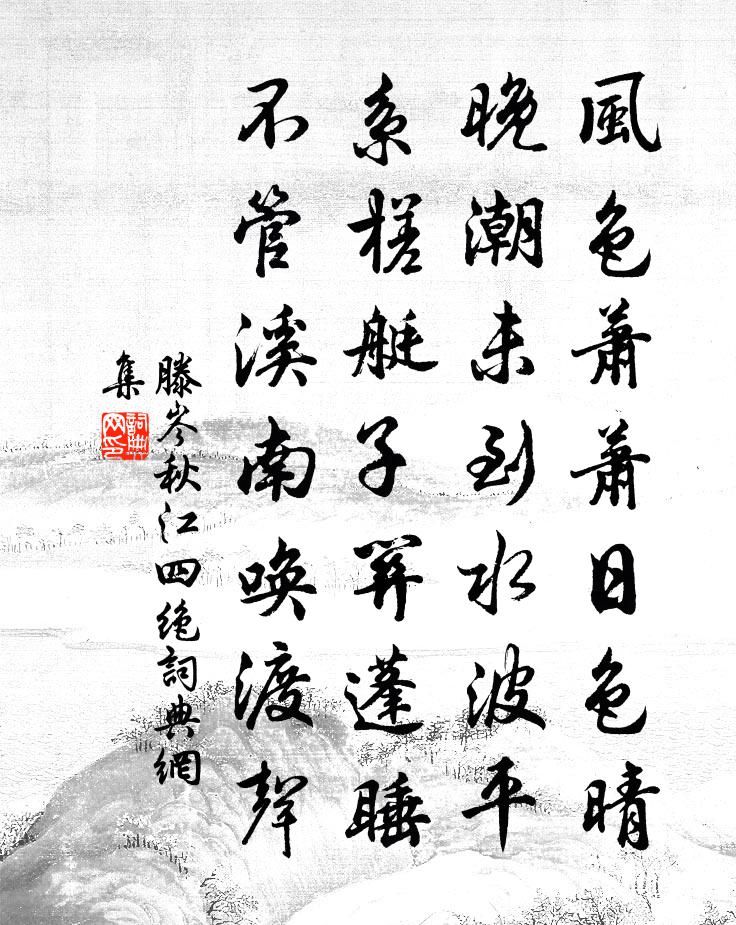 風色蕭蕭日色晴
晚潮未到水波平
系槎艇子開蓬睡
不管溪南喚渡聲
滕岑秋江四绝詞典網
集
詞典网印